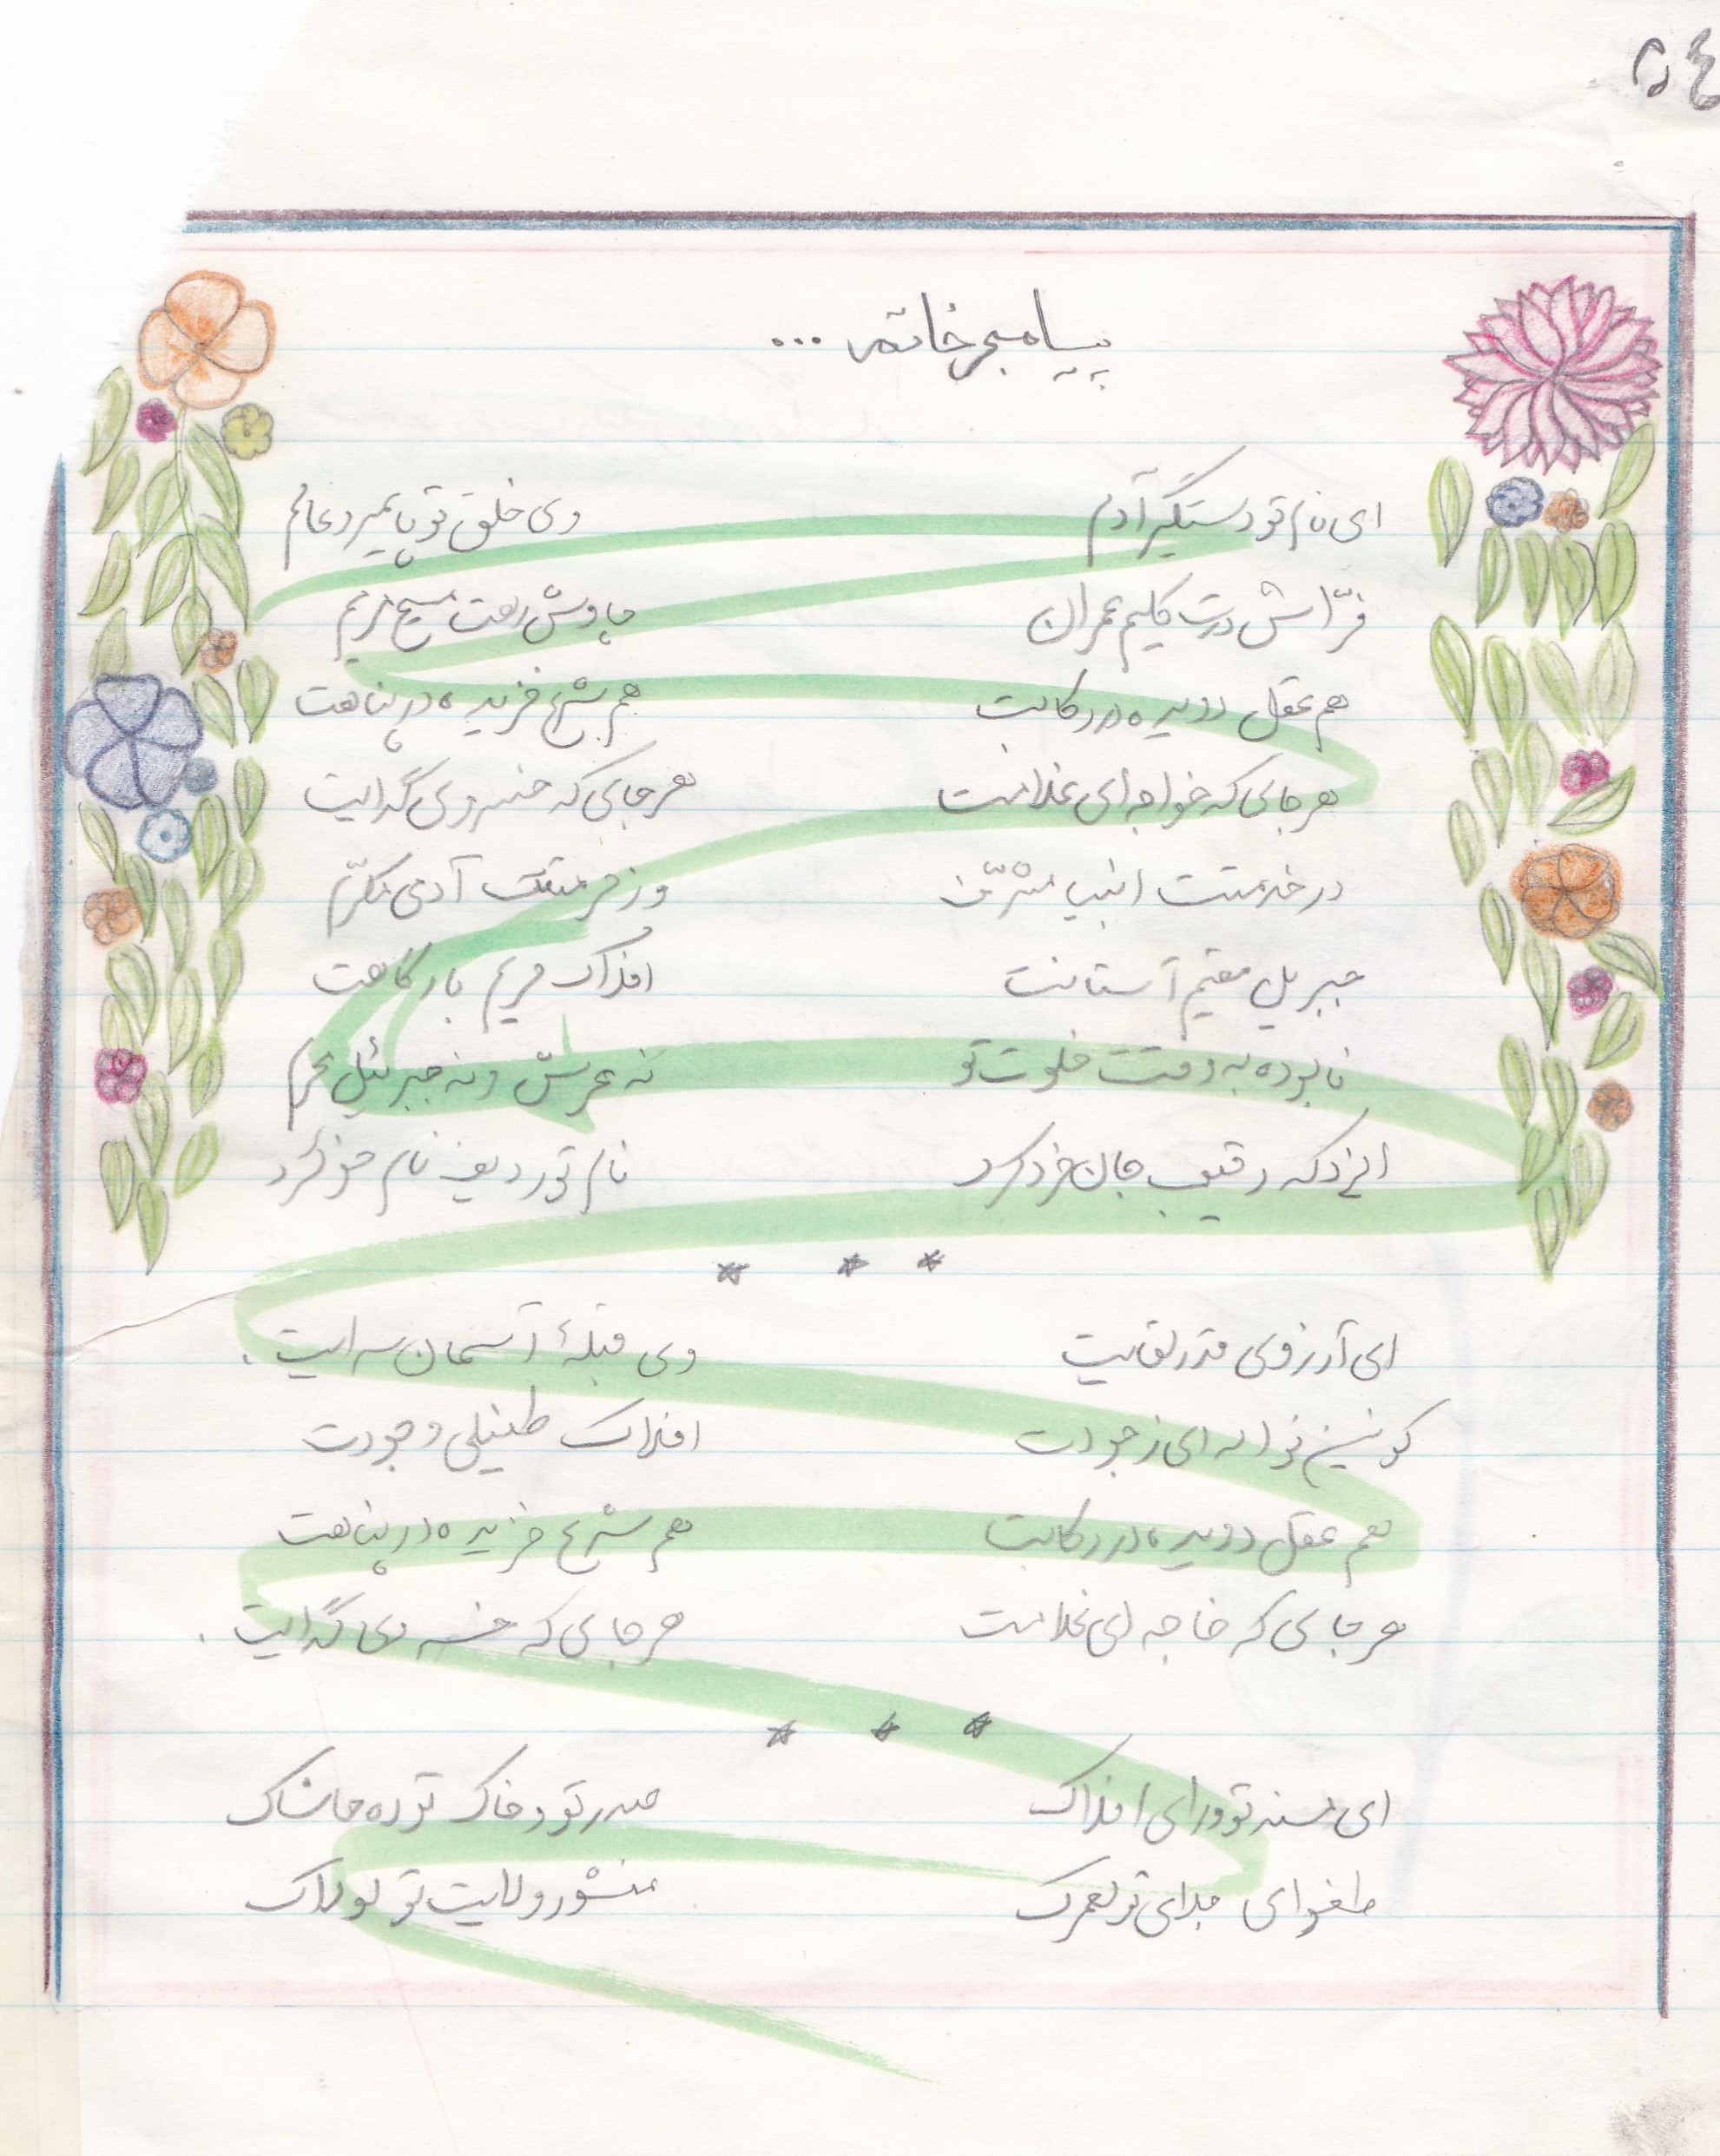 ۵۴
پیامبر خاتم ...
ای نام تو دستگیر آدم    وی خلق تو پایمرد عالم
فرّاش درت کلیم عمران    چاوش رهت مسیح مریم
هم عقل دویده در رکابت    هم شرع خزیده در پناهت
هر جای که خواجه ای غلامت    هر جای که خسروی گدایت
در خدمتت انبیا مشرّف    وز حرمتت آدمی مکرّم
جبریل مقیم آستانت    افلاک حریم بارگاهت
نابوده به وقت خلوت تو    نه عرش و نه جبرئیل محرم
ایزد که رقیب جان خرد کرد    نام تو ردیف نام خود کرد
* * *
ای آرزوی قدر لقایت    وی قبلهٔ آسمان سرایت.
کونین نواله ای ز جودت    افلاک طفیلی وجودت
هم عقل دویده در رکابت    هم شرع خزیده در پناهت
هر جای که خاجه ای غلامت    هر جای که خسروی گدایت.
* * *
ای مسند تو ورای افلاک    صدر تو و خاک توده خاشاک
طغرای جلای تو لعمرک    منشور ولایت تو لولاک